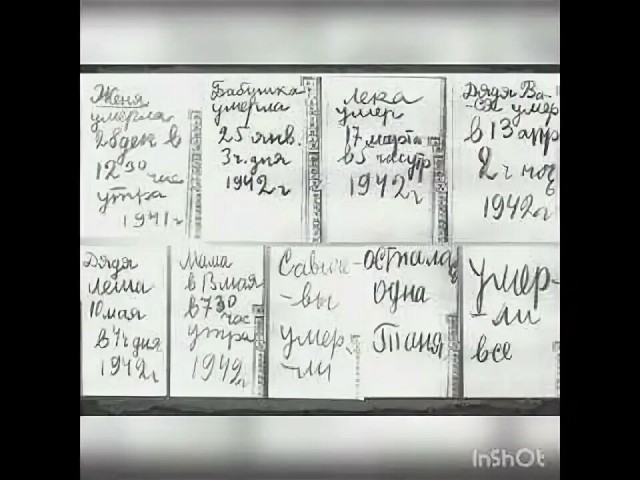 Женя
умерла
28 дек в
12 30 час
утра
1941 г
Бабушка
умерла
25 янв.
3 ч. дня
1942 г
Лека
умер
17 марта
в 5 час утр
1942 г
Дядя Ва-
-ся умер
в 13 апр
2 ч ноч
1942 г
Дядя
Леша
10 мая
в 4 ч дня
1942 г
Мама
в 13 мая
в 7 30
час
утра
1942 г
Савиче-
-вы
умер-
-ли
осталась
одна
Таня
умер-
-ли
все
InShOt